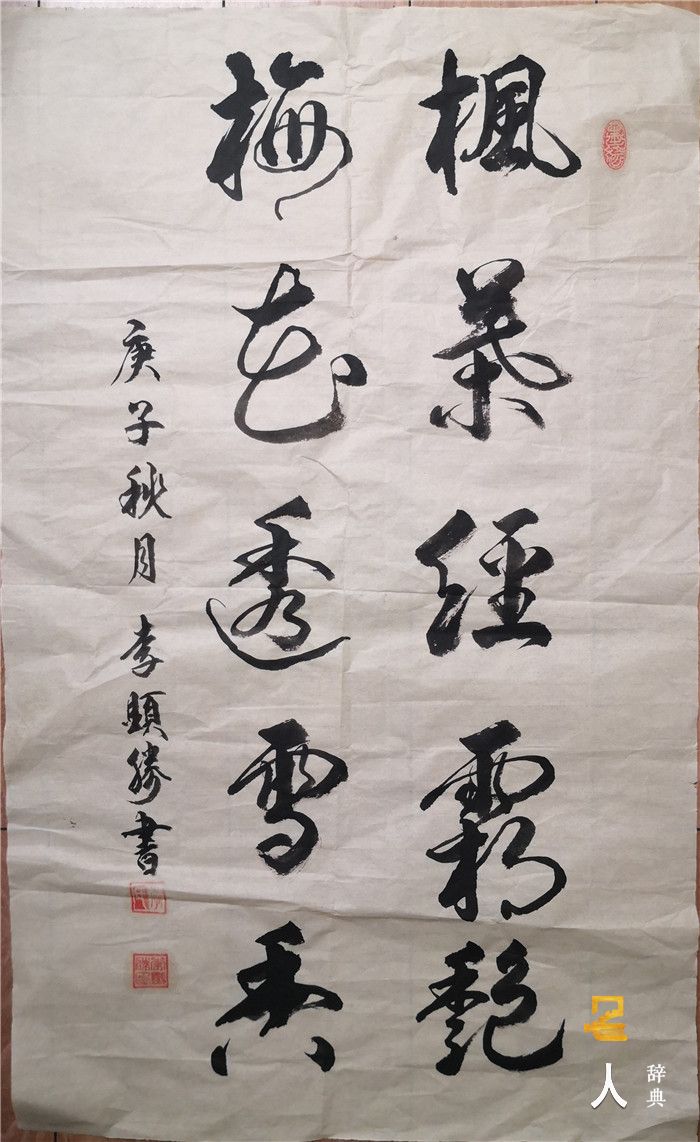 楓葉經霜艷
梅花透雪香
庚子秋月 李顯勝書
名人辞典